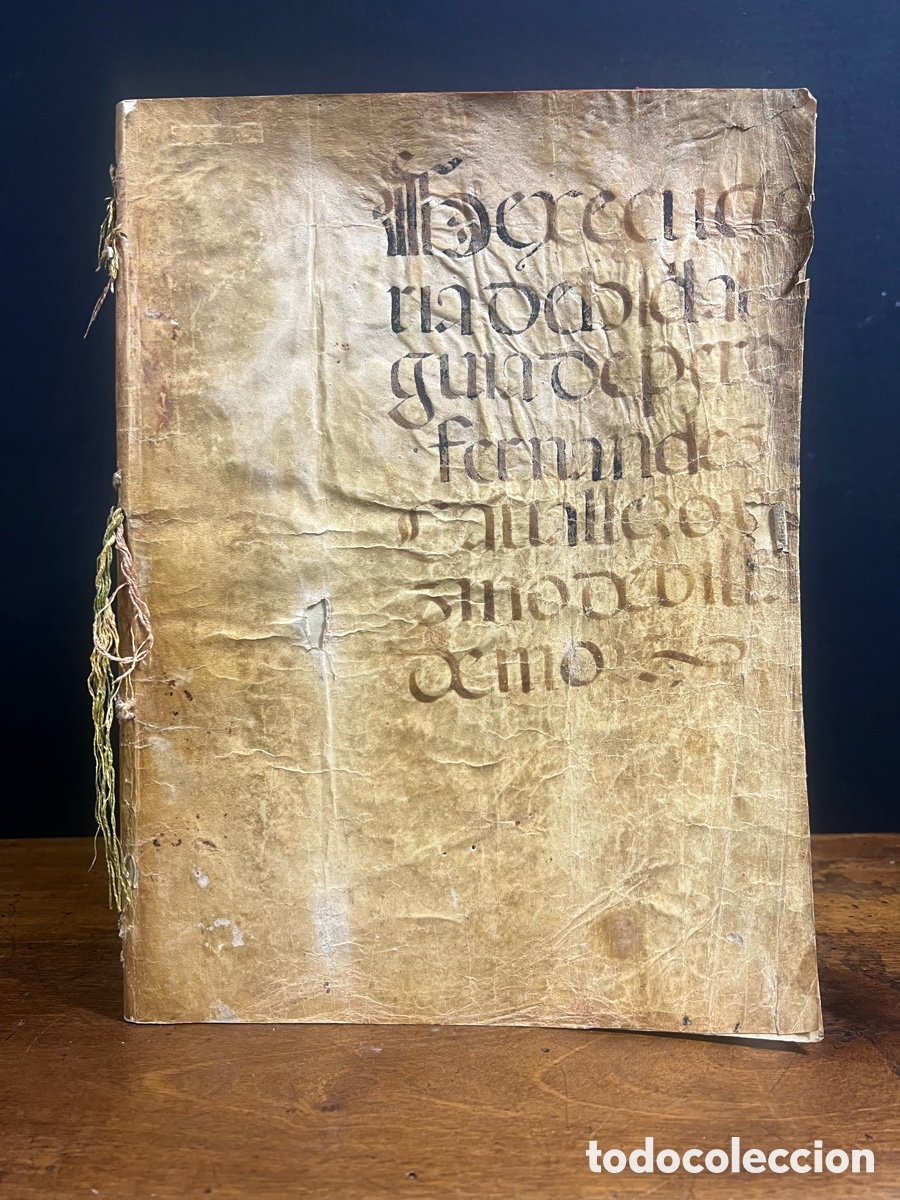 executo
ria de hidal
guia de pero
fernandes
cavalleo ve
zino de vill
demor
todocoleccion